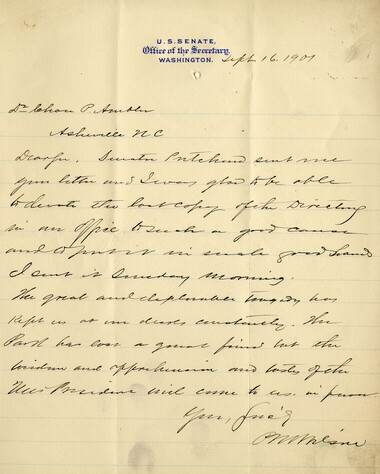 U.S. SENATE,
Office of the Secretary,
WASHINGTON.
Sept. 16, 1901
Dr Chas P. Ambler
Asheville N C
Dear Sir. Senator Pritchard sent me
your letter and I was glad to be able
to devote the last copy of the Directory
in our office to such a good cause
and to put it in such good hands
I sent it Sunday Morning.
The great and deplorable tragedy has
kept us at our desks constantly. The
Park has lost a great friend but the
wisdom and apprehension and tastes of the
New President will come to us in
Yours